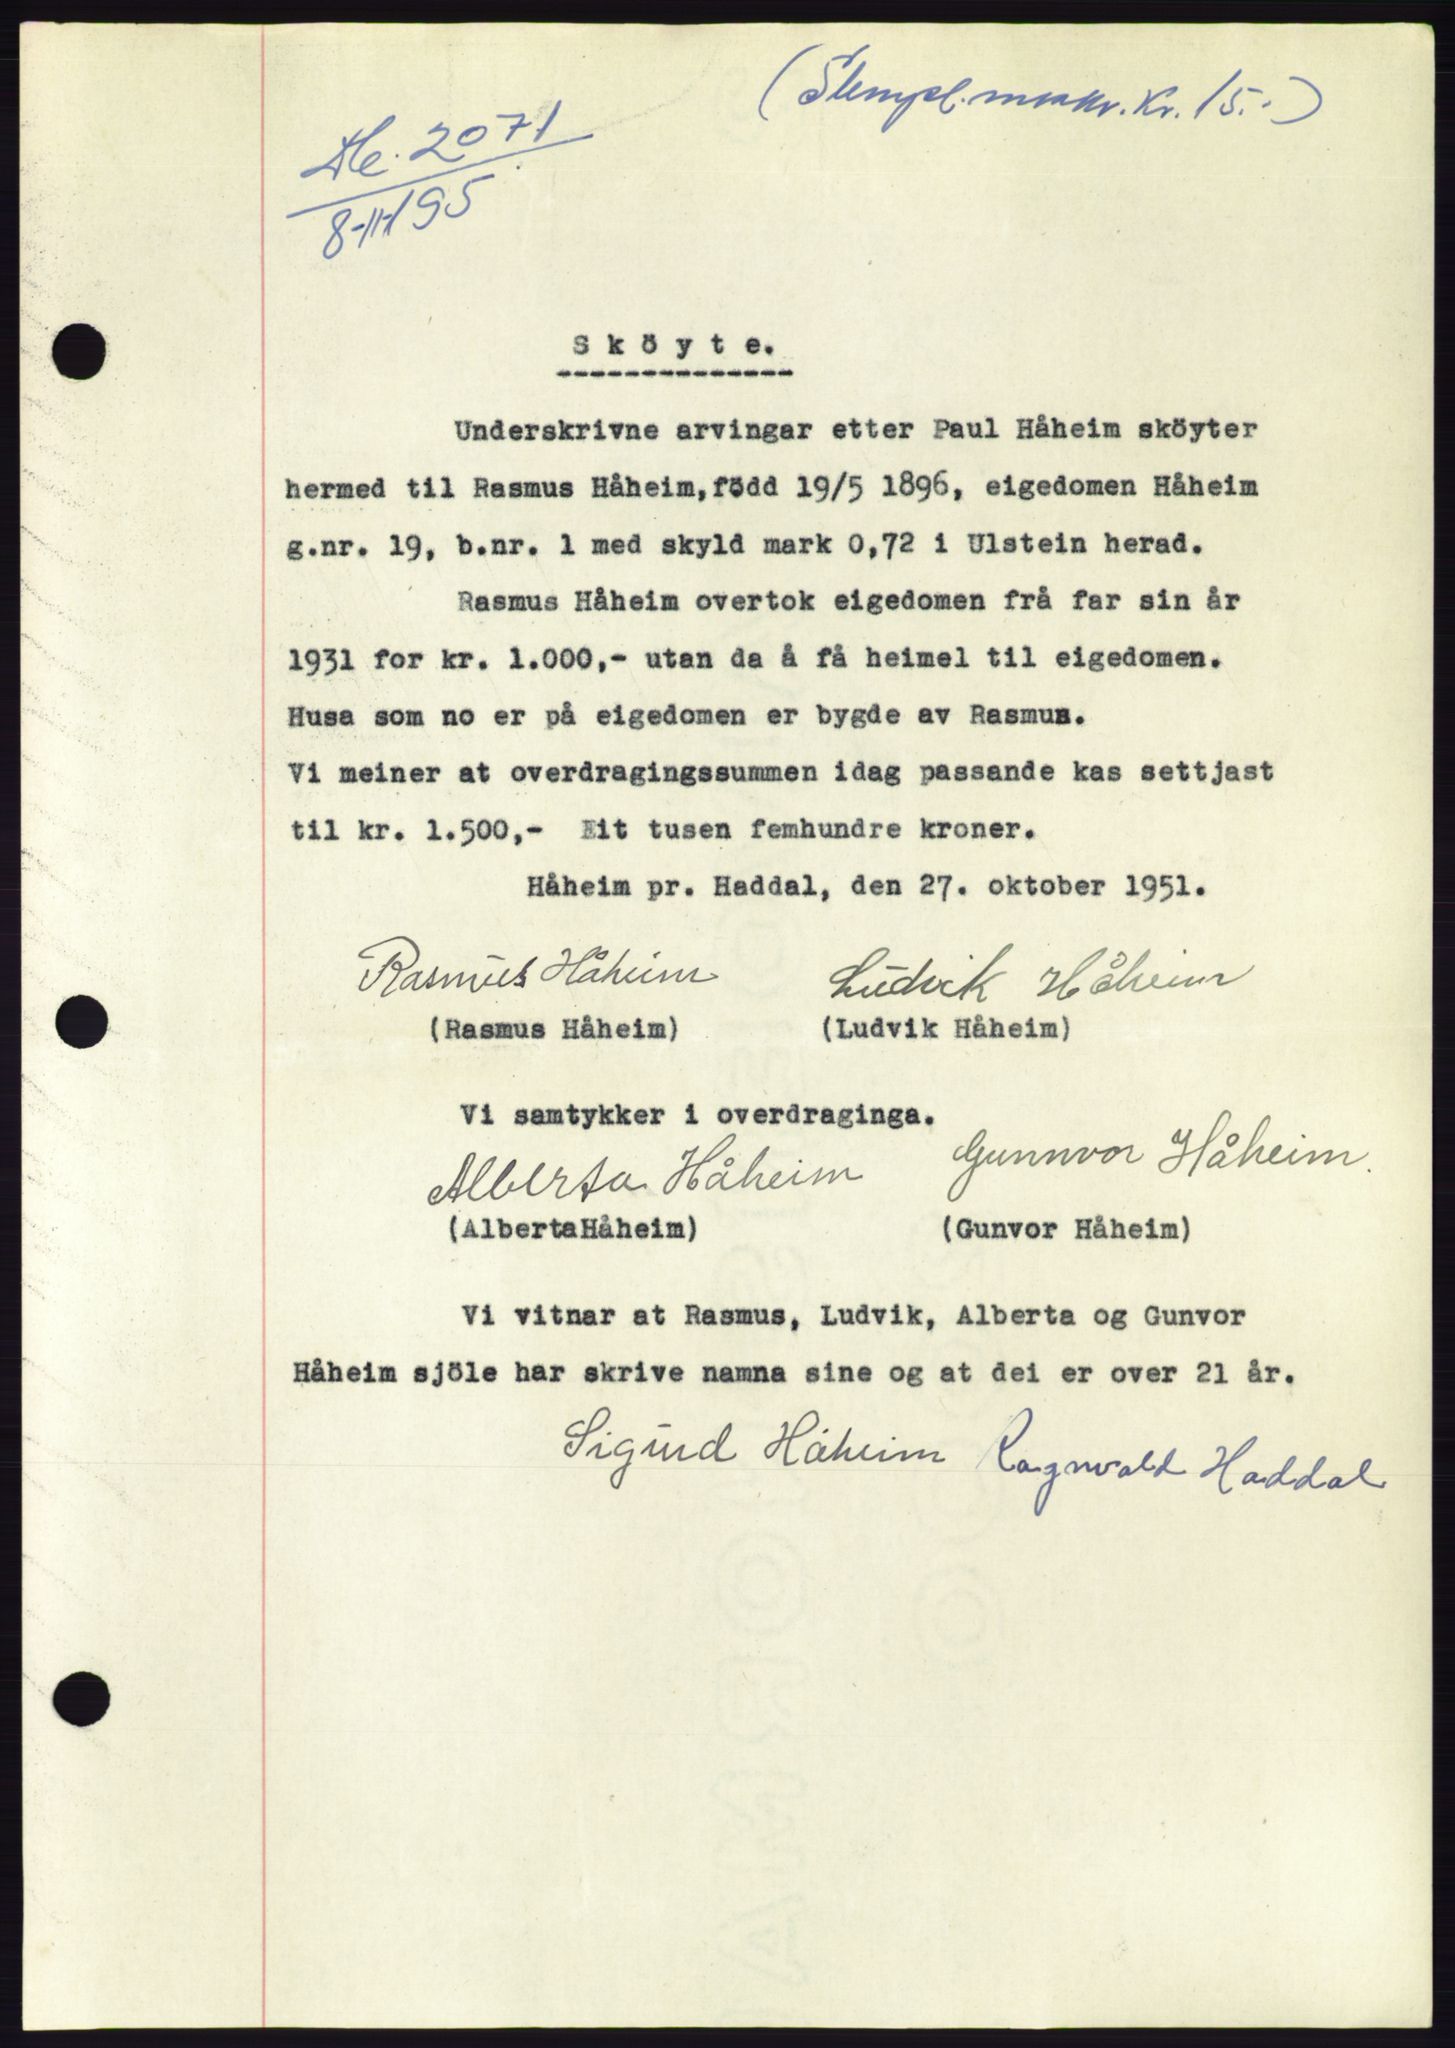 (Stempl.merkr. Kr. 15.-)
2071
8-11-195
Sköyte.
Underskrivne arvingar etter Paul Håheim sköyter
hermed til Rasmus Håheim, född 19/5 1896, eigedomen Håheim
g.nr. 19, b.nr. 1 med skyld mark 0,72 i Ulstein herad.
Rasmus Håheim overtok eigedomen frå far sin år
1931 for kr. 1.000,- utan da å få heimel til eigedomen.
Husa som no er på eigedomen er bygde av Rasmus.
Vi meiner at overdragingssummen idag passande kas settjast
til kr. 1.500,- Eit tusen femhundre kroner.
Håheim pr. Haddal, den 27. oktober 1951.
Rasmus Håheim Ludvik Håheim
(Rasmus Håheim) (Ludvik Håheim)
Vi samtykker i overdraginga.
Alberta Håheim Gunnvor Håheim.
(AlbertaHåheim) (Gunvor Håheim)
Vi vitnar at Rasmus, Ludvik, Alberta og Gunvor
Håheim sjöle har skrive namna sine og at dei er over 21 år.
Sigurd Håheim Ragnvald Haddal